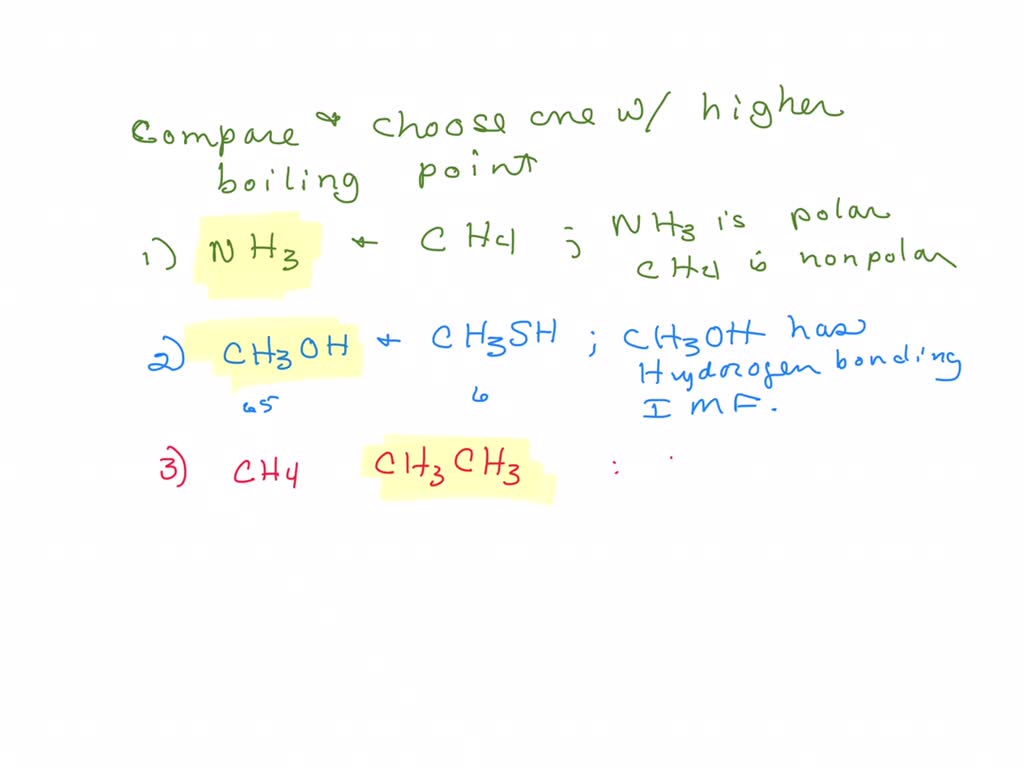 Compare & choose one w/ higher
boiling point
1) NH3 + CH4 ; NH3 is polar
CH4 is nonpolar
2) CH3OH + CH3SH ; CH3OH has
Hydrogen bonding
65 6 IMF.
3) CH4 CH3CH3 :